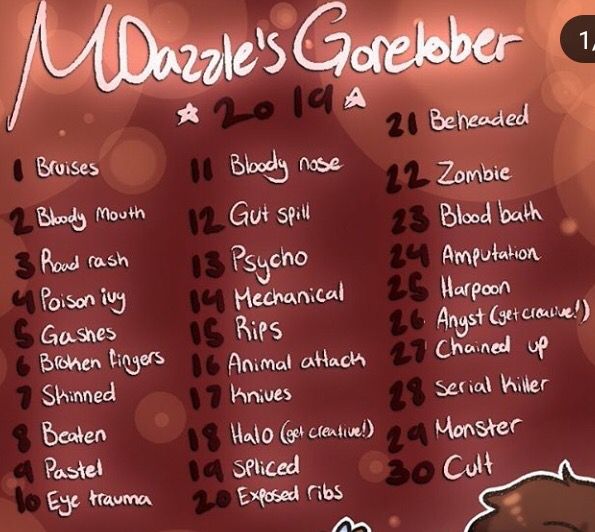 MDazzle's Goretober
1/
☆ 2019 ☆
1 Bruises
2 Bloody Mouth
3 Road rash
4 Poison ivy
5 Gashes
6 Broken fingers
7 Skinned
8 Beaten
9 Pastel
10 Eye trauma
11 Bloody nose
12 Gut spill
13 Psycho
14 Mechanical
15 Rips
16 Animal attack
17 Knives
18 Halo (get creative!)
19 Spliced
20 Exposed ribs
21 Beheaded
22 Zombie
23 Blood bath
24 Amputation
25 Harpoon
26 Angst (get creative!)
27 Chained up
28 Serial killer
29 Monster
30 Cult